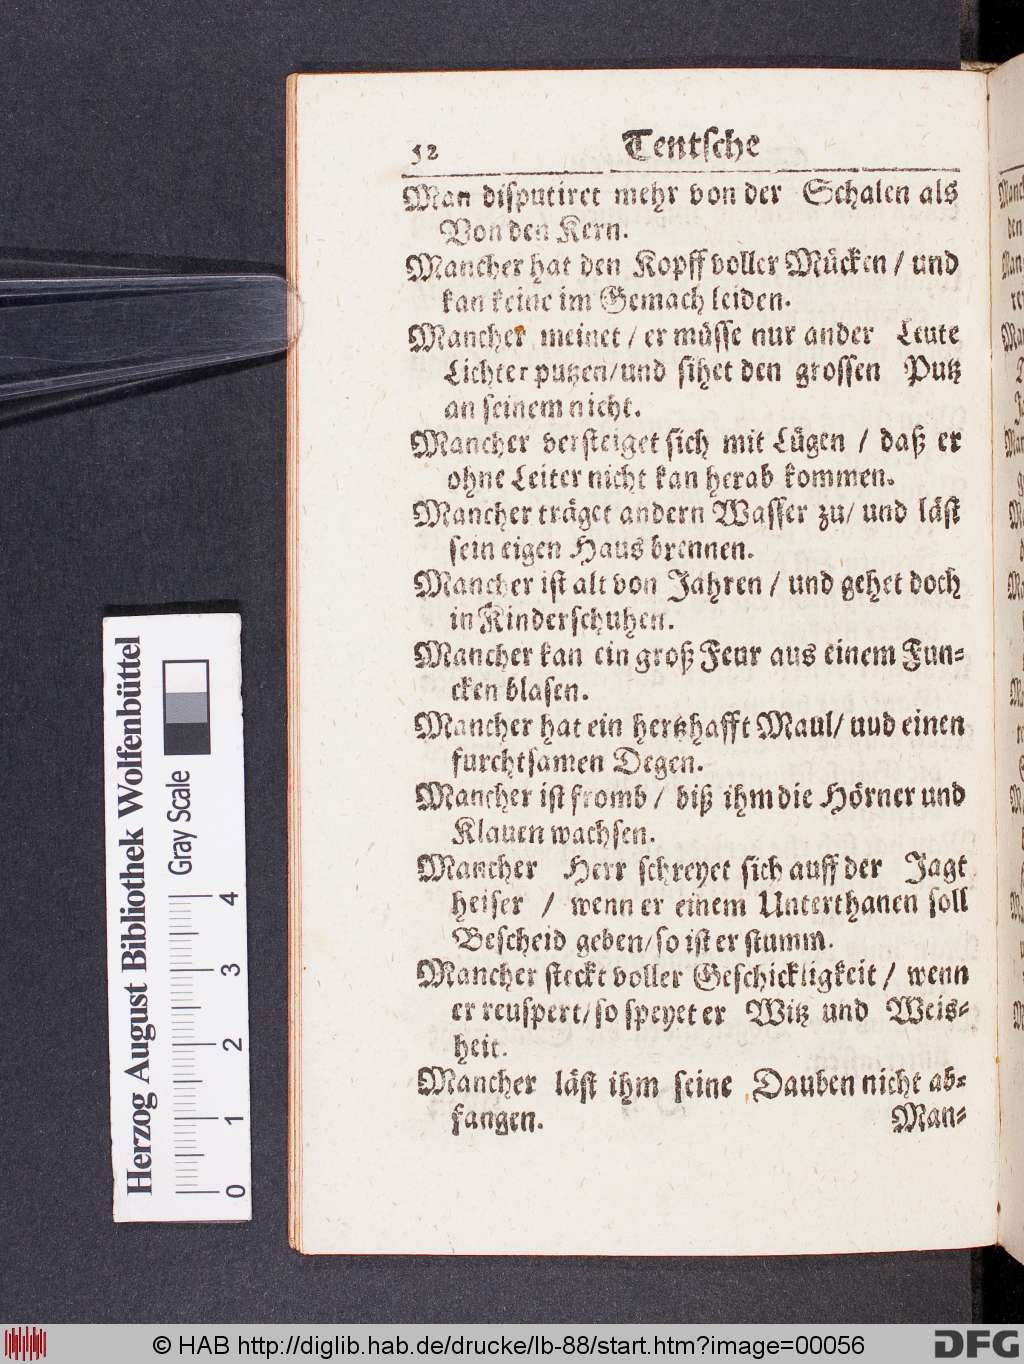 52 Teutsche
Man disputiret mehr von der Schalen als
Von den Kern.
Mancher hat den Kopff voller Mücken / und
kan keine im Gemach leiden.
Mancher meinet / er müsse nur ander Leute
Lichter putzen / und sihet den grossen Putz
an seinem nicht.
Mancher versteiget sich mit Lügen / daß er
ohne Leiter nicht kan herab kommen.
Mancher träget andern Wasser zu / und läst
sein eigen Haus brennen.
Mancher ist alt von Jahren / und gehet doch
in Kinderschuhen.
Mancher kan ein groß Feur aus einem Fun-
cken blasen.
Mancher hat ein hertzhafft Maul / uud einen
furchtsamen Degen.
Mancher ist fromb / biß ihm die Hörner und
Klauen wachsen.
Mancher Herr schreyet sich auff der Jagt
heiser / wenn er einem Unterthanen soll
Bescheid geben / so ist er stumm.
Mancher steckt voller Geschickligkeit / wenn
er reuspert / so speyet er Witz und Weis-
heit.
Mancher läst ihm seine Dauben nicht ab-
fangen.
Man-
Herzog August Bibliothek Wolfenbüttel
Gray Scale
0 1 2 3 4
© HAB http://diglib.hab.de/drucke/lb-88/start.htm?image=00056
DFG